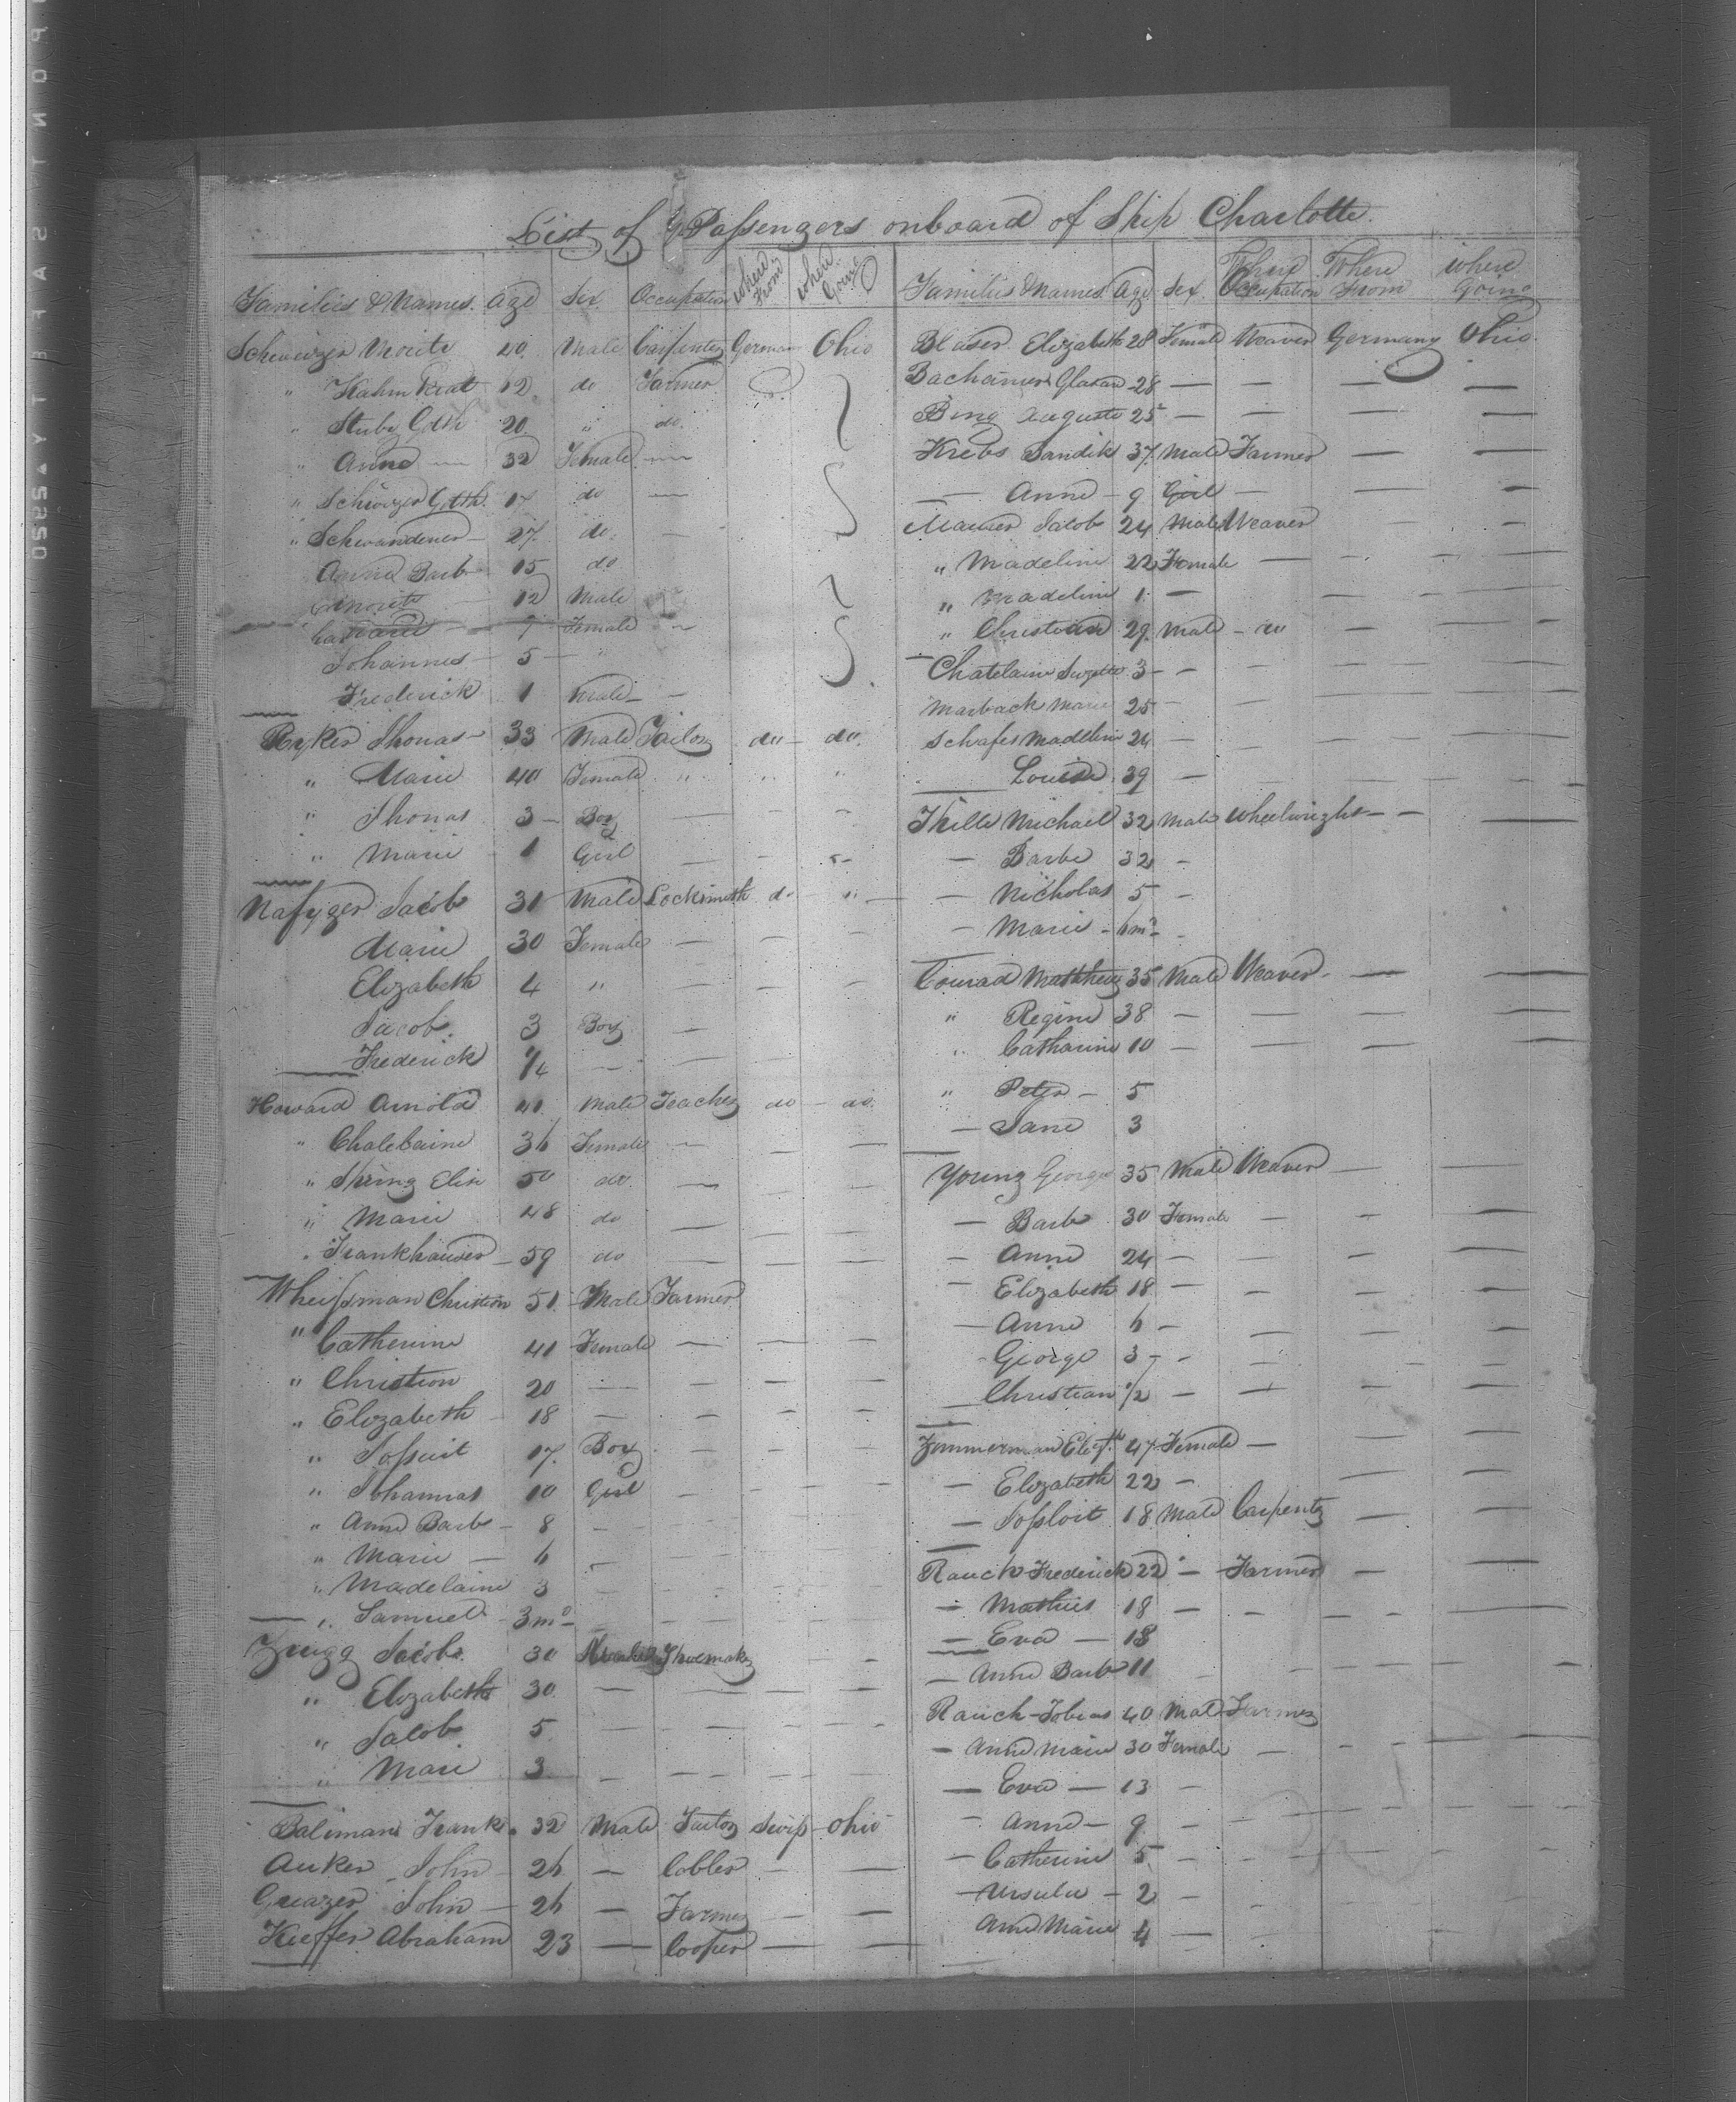 List of Passengers onboard of Ship Charlotte.
Families & Names. Age Sex Occupation Where From Where Going
Schweizer Moritz 40 Male Carpenter German Ohio
" Kahm 12 do Farmer
" Stube Gotli 20 " do
" Anne — 32 Female —
" Schweizer Goth. 17 do —
" Schwandener — 27 do. —
Anna Barb 15 do
Moritz 12 Male
9 Female
Johannes — 5 — "
Frederick 1 Male —
Ryker Thomas — 33 Male Tailor do — do.
" Marie 40 Female " " "
" Thomas 3 — Boy — —
" Marie 1 Girl — —
Nafyger Jacob 31 Male Locksmith do "
Marie 30 Female — — —
Elizabeth 4 " — — —
Jacob. 3 Boy —
Frederick 1/4 — — —
Howard Arnold 41 Male Teacher do — do.
" Chalebaine 36 Female — — —
" Spring Elise 50 do. — — —
" Marie 48 do — — —
" Frankhauser — 59 do — — —
Wheissman Christian 51. Male Farmer
" Catherine 41 Female — — —
" Christion 20 — — —
" Elizabeth 18 — — —
" 17. Boy — — —
" Johannas 10 Girl — — —
" Anne Barb — 8 —
" Marie — 6 —
" Madelaine 3 —
" Samuel 3 mo —
Zrugg Jacob. 30 Shoemaker — —
" Elizabeth 30. — — — —
" Jacob 5 — — — —
" Marie 3 — — — —
Balimann Frank. 32 Male Tailor Swiss — Ohio
Anker John 26 — Cobbler — —
Greazer John — 26 — Farmer — —
Kieffer Abraham 23 — Cooper — —
Families & Names Age Sex Occupation Where From Where Going
Blaser. Elizabeth 28 Female Weaver Germany Ohio.
Bachaner 28 — — — —
Bing Auguste 25 — — — —
Krebs Bandik 37. Male Farmer — —
— Anne — 9 Girl — — —
Maurer Jacob 24 Male Weaver — —
" Madeline 22 Female — — —
" Madeline 1. —
" Christian 29. Male — do — —
Chatelaine Suzette 3 — — — —
Marback Marie 25 — — — —
Schafer Madeline 24 — — — —
Louise 39 —
Thille Michael 32 Male Wheelwright — — —
— Barbe 32 —
— Nicholas 5 —
— Marie — 6 mo — —
Conrad Matthew 35 Male Weaver — —
" Regine 38 — — — —
" Catharine 10 — — — —
" Peter — 5
— Jane 3
Young George 35 Male Weaver — —
— Barb 30 Female — — —
— Anne 24 — — —
— Elizabeth 18 — — —
— Anne 6 — — — —
— George 3 — — — — —
Christian 1/2 — — — —
Zimmerman Elizth. 47 Female —
— Elizabeth 22 — — —
— 18 Male Carpenter — —
Rauch Frederick 22 " — Farmer — —
— Mathies 18 — — — —
— Eva — 18
— Anne Barb 11 — — —
Rauch Tobias 40 Male Farmer
— Anne Marie 30 Female — — —
— Eva — 13 —
— Anne — 9 — —
— Catherine 5 — —
— Ursula — 2 —
Anne Marie 4 — —